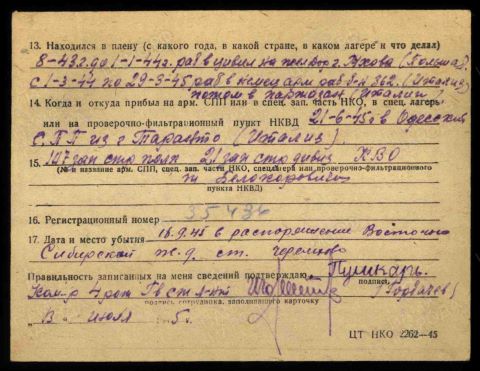 13. Находился в плену (с какого года, в какой стране, в каком лагере и что делал)
8-43г. до 1-1-44г. раб в г. (Польша)
с 1-3-44 по 29-3-45 раб в немец арм раб б-н 862. (Италия)
(Италии)
14. Когда и откуда прибыл на арм. СПП или в спец. зап. часть НКО, в спец. лагерь
или на проверочно-фильтрационный пункт НКВД 21-6-45 в Одесский
СПП из г Таранто (Италия).
15. зап стр полк зап стр дивиз ХВО
(№ и название арм. СПП, спец. зап. части НКО, спецлагеря или проверочно-фильтрационного
пункта НКВД)
16. Регистрационный номер 35436
17. Дата и место убытия 18.9.45 в распоряжение Восточно
Сибирской ж.д. ст. Черемхово
Правильность записанных на меня сведений подтверждаю Пушкарь.
подпись
Ком-р 4 рот Гв ст л-нт
подпись сотрудника, заполнявшего карточку
июля 5г.
ЦТ НКО 2262—45